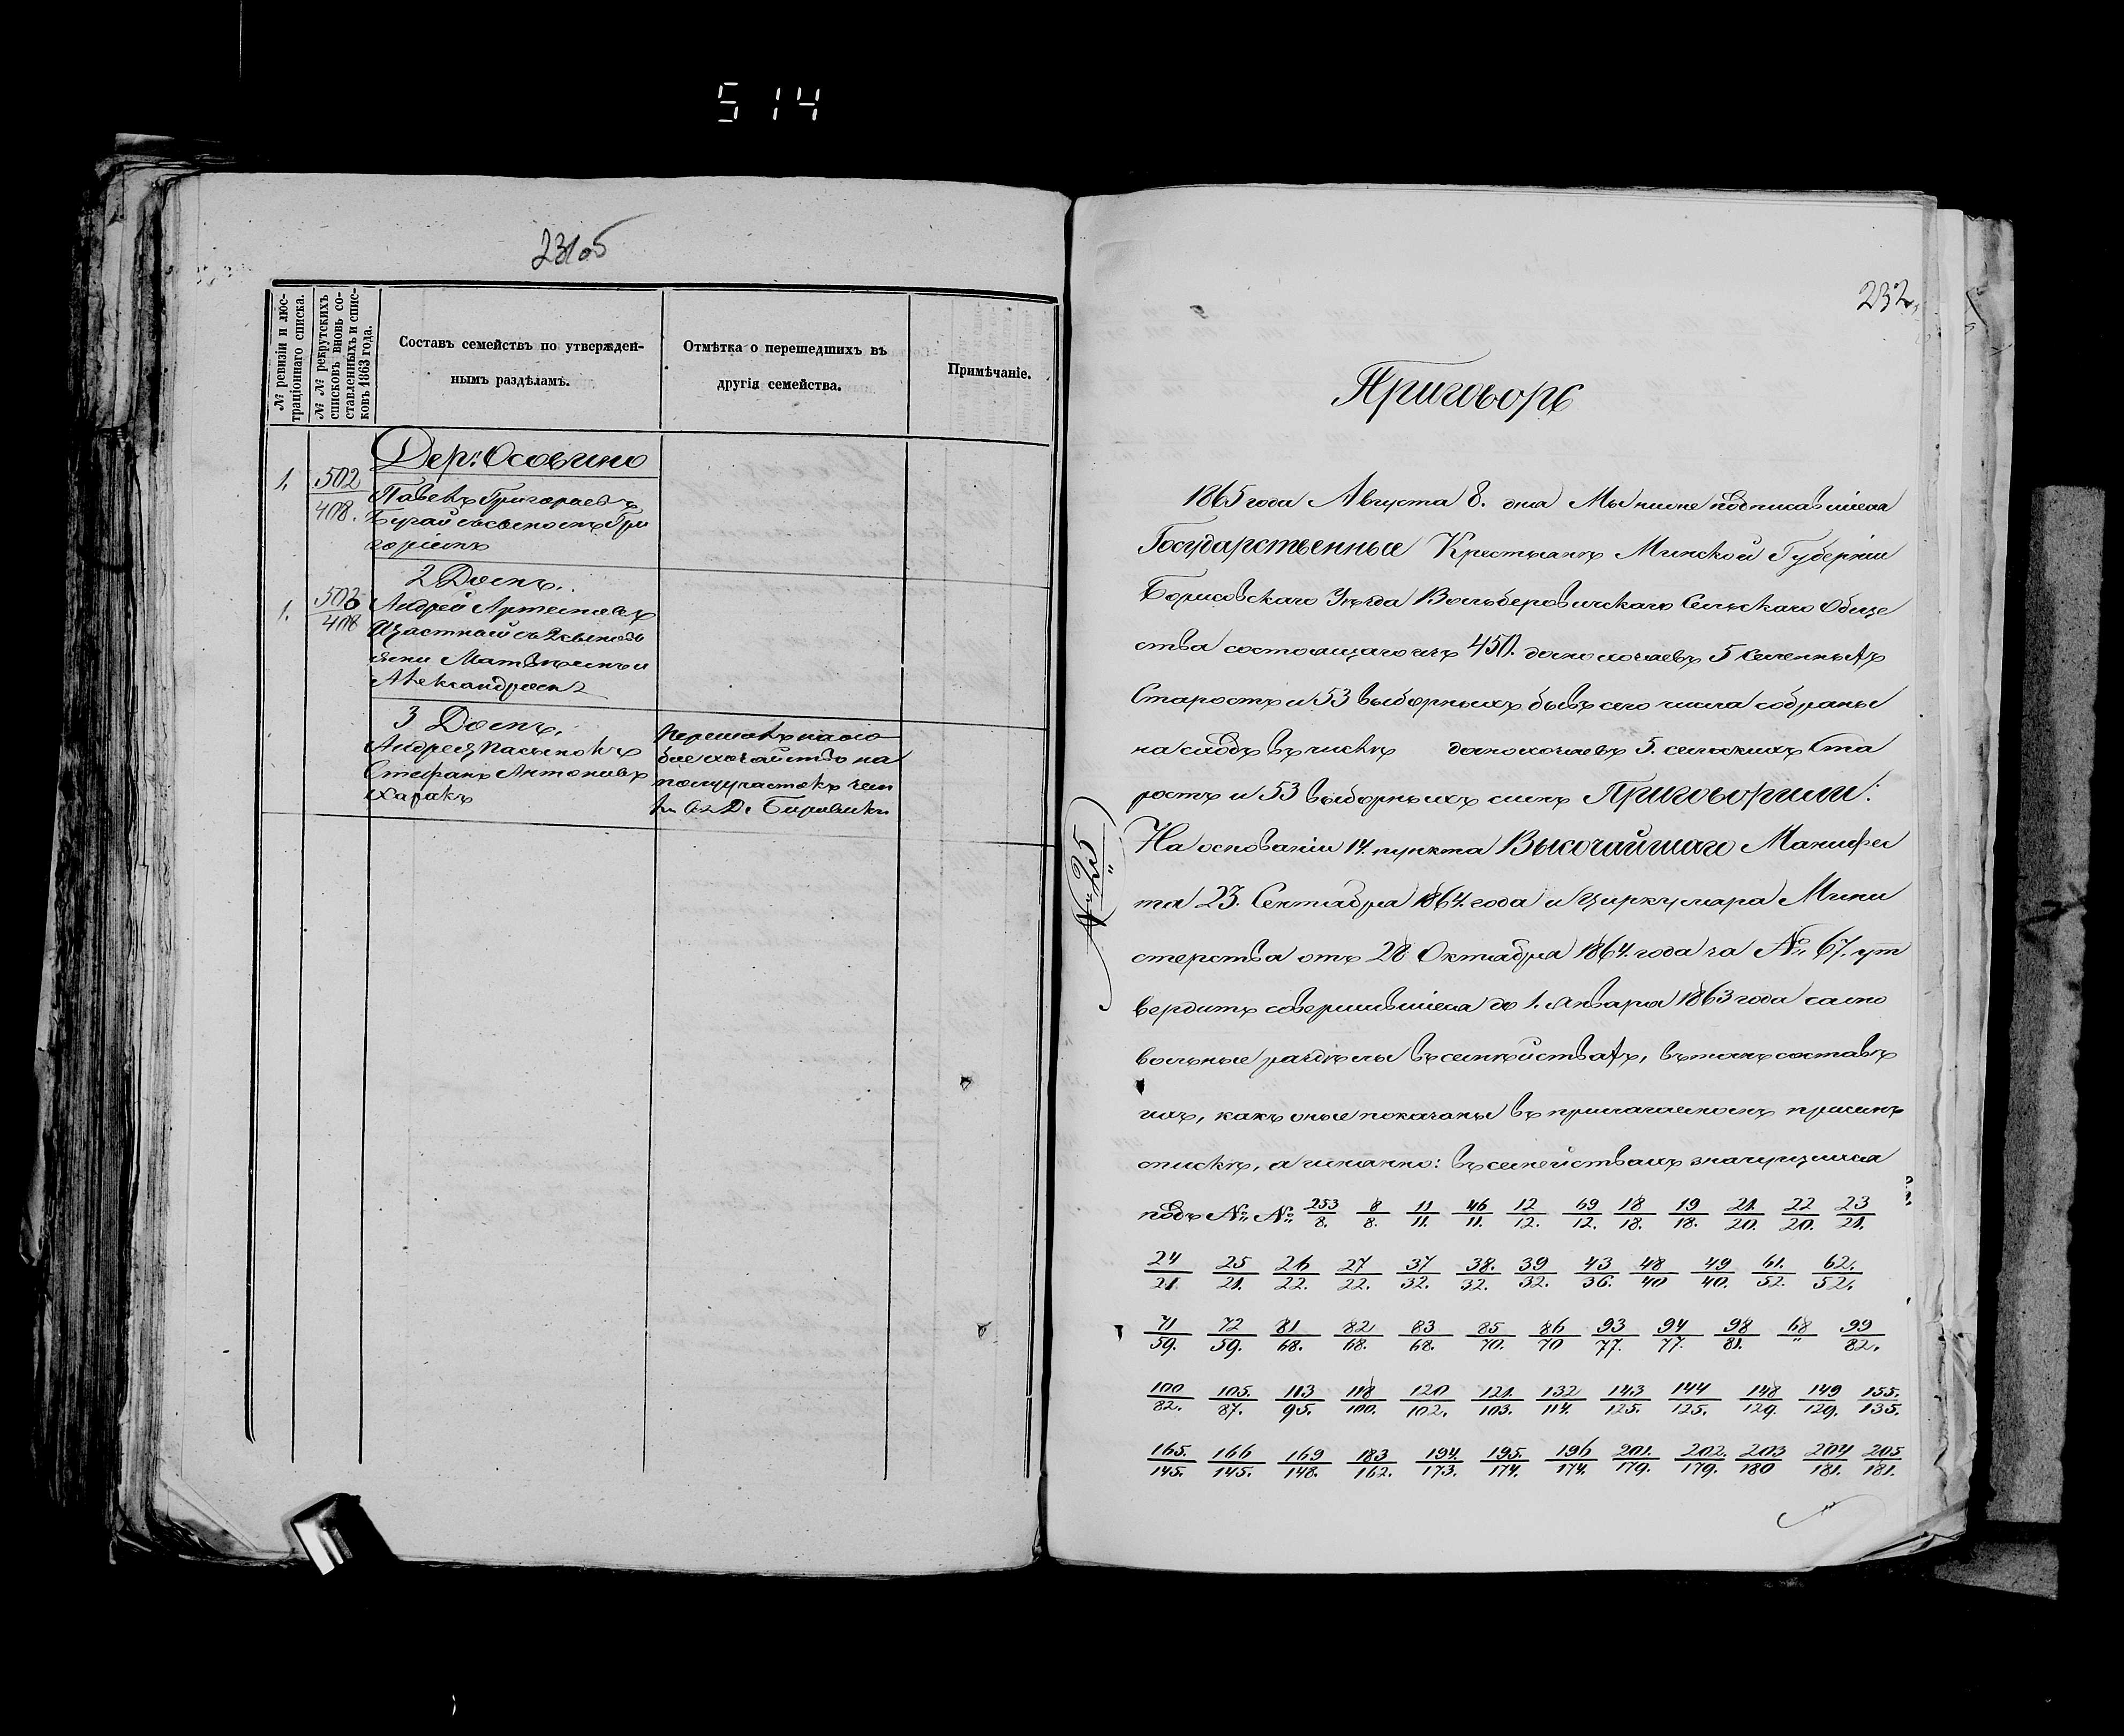 514
231об
№ ревизіи и люс-
траціоннаго списка.
№ № рекрутскихъ
списковъ вновь со-
ставленныхъ и спис-
ковъ 1863 года.
Составъ семействъ по утвержден-
нымъ раздѣламъ.
Отмѣтка о перешедшихъ въ
другія семейства.
Примѣчаніе.
Дер: Осовино
1. 502/408. Павелъ Григорьевъ
Бугай съ сыномъ Гри
горіемъ
2 Домъ.
1. 503/408 Андрей Артемовъ
Щастный съ 2 сыновь
ями Матвѣемъ и
Александромъ
3 Домъ.
Андрея пасынокъ
Стефанъ Антоновъ
Харакъ
перешолъ на осо
бое хозяйство на
полуучастокъ зем
ли въ Д.
232
Приговоръ
1865 года Августа 8. дня Мы ниже подписавшіеся
Государственные Крестьянъ Минской Губерніи
Борисовскаго Уѣзда Вольберовичскаго Сельскаго Обще
ства состоящаго изъ 450. домохозяевъ 5 селенныхъ
Старостъ и 53 выборныхъ бывъ сего числа собраны
на сходъ въ числѣ домохозяевъ 5. сельскихъ Ста
ростъ и 53 выборныхъ симъ Приговорили:
№ 25
На основаніи 14. пункта Высочайшаго Манифес
та 23. Сентября 1864. года и Циркуляра Мини
стерства отъ 28 Октября 1864. года за № 67. ут
вердить совершившіеся до 1. Января 1863 года само
вольные раздѣлы въ семѣйствахъ, въ томъ составѣ
ихъ, какъ оные показаны въ прилагаемомъ присемъ
спискѣ, а именно: въ семействахъ значущихся
подъ №№ 253/8. 8/8. 11/11. 46/11. 12/12. 69/12. 18/18. 19/18. 21./20. 22/20. 23/21.
24/21 25/21. 26/22. 27/22. 37/32. 38./32. 39/32. 43/36. 48/40 49/40. 61./52. 62./52.
71/59. 72/59. 81/68. 82/68. 83/68. 85/70. 86/70 93/77. 94/77. 98/81. 68/" 99/82.
100/82. 105./87. 113/95. 118/100. 120/102. 121./103. 132/114. 143/125. 144/125. 148/129. 149/129. 155./135.
165./145. 166/145. 169/148. 183/162. 194./173. 195./174. 196/174. 201./179. 202./179. 203/180 204/181. 205/181.